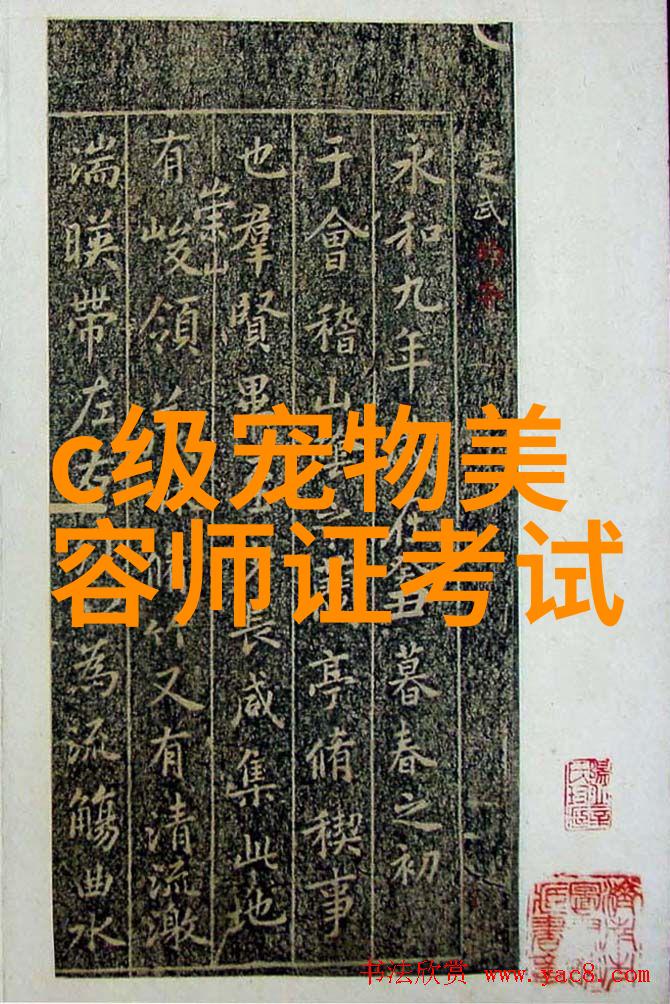 c级宠物美
容师证考试
定武
永和九年在癸丑暮春之初
于會稽山之蘭亭脩稧事
也羣賢畢長咸集此地
有崇山峻領脩竹又有清流激
湍暎帶左右為流觴曲水
书法欣赏 www.yac8.com